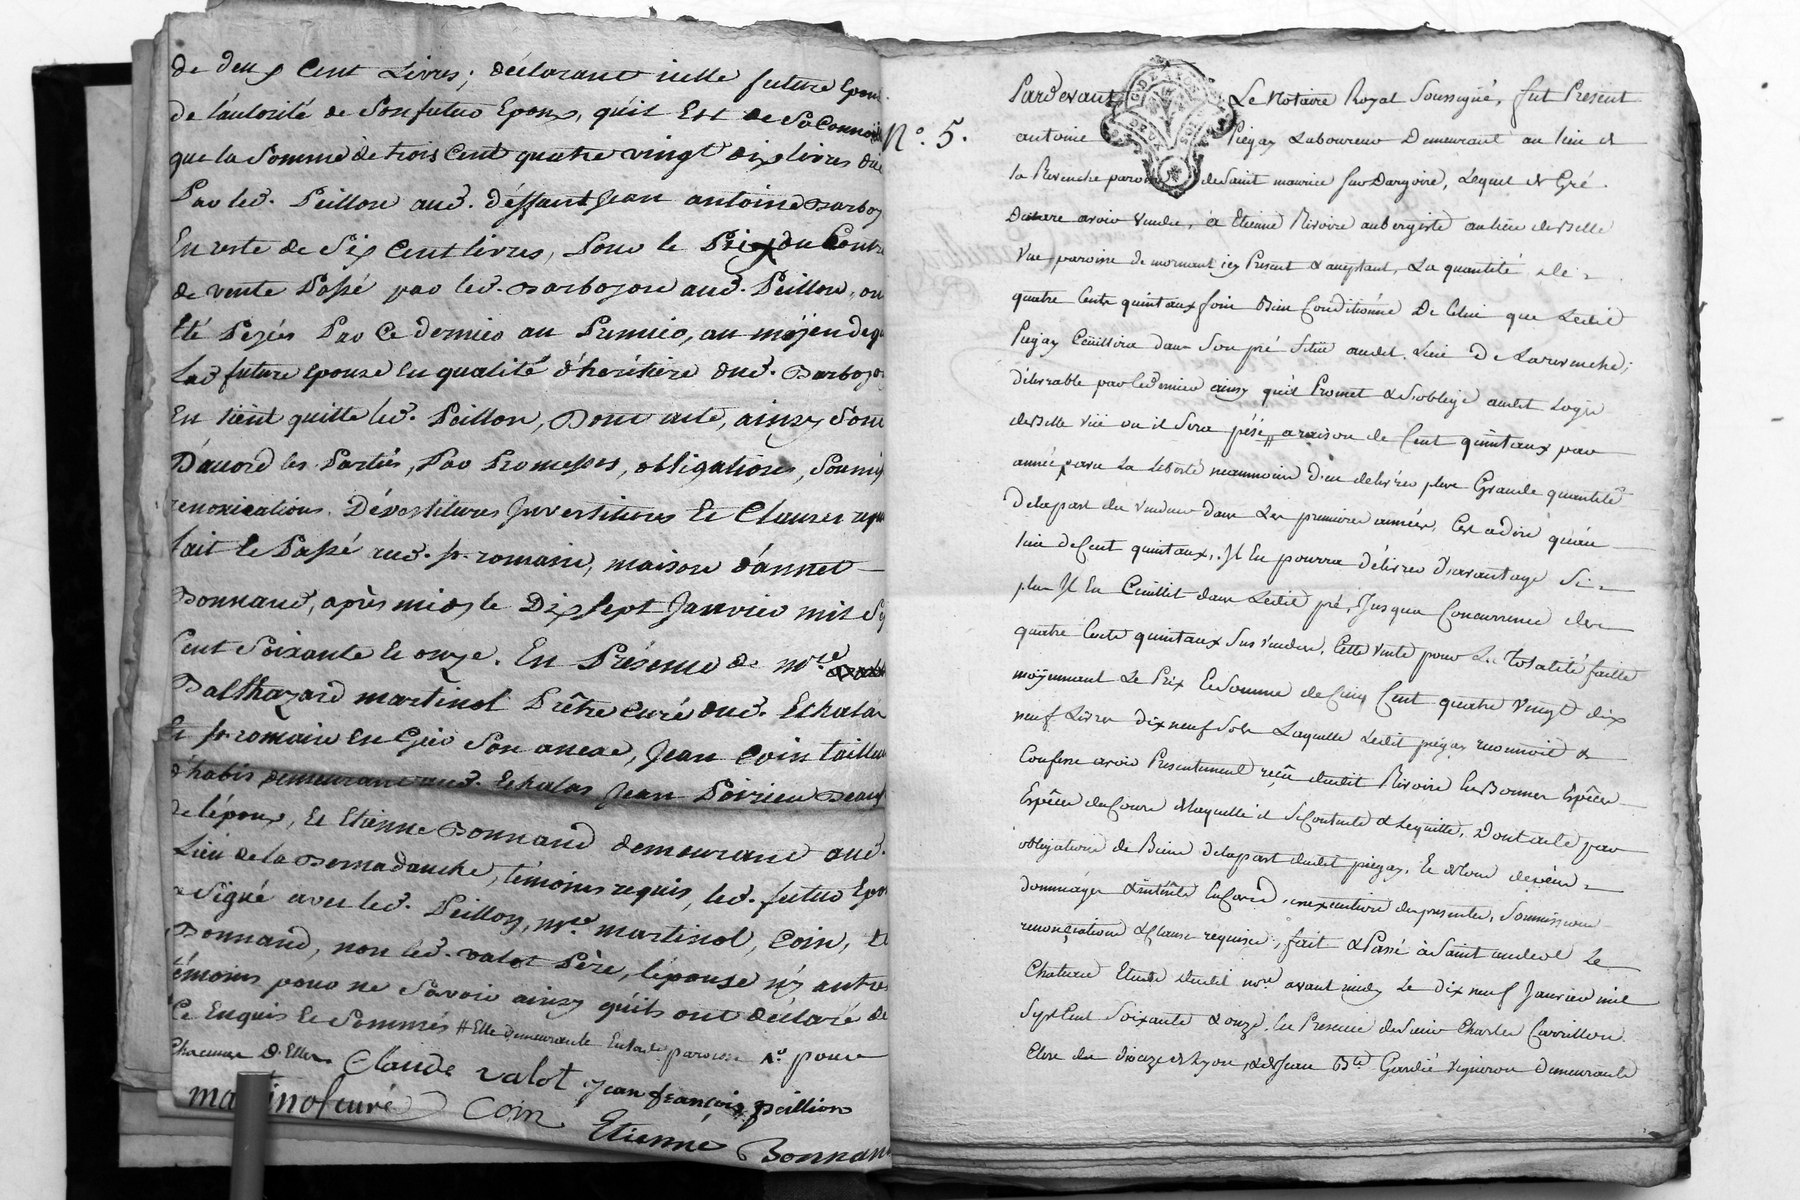 de deux Cent Livres; déclarant icelle future Epou
de l'autorité de Son futur Epoux, qu'il Est de Sa Connoiss
que la Somme de trois Cent quatre vingt dix livres due
Par led. Peillon aud. déffunt Jean antoine Barbozon
En reste de Six Cent livres, pour le Prix du Contra
de vente Passé par led. Barbozon aud. Peillon, on
Eté Payés Par Ce dernier au Premier, au moÿen de q
Lad future epouse En qualité d'heritière dud. Barbozon
En tient quitte led. Peillon, Dont acte, ainsy Sont
D'accord les Parties, Par Promesses, obligations, Soumis
renonciations, Dévestitures Investitures Et Clauses requ
fait Et Passé aud. St. romain, maison d'annet
Bonnand, après midy le Dix Sept Janvier mil Se
Cent Soixante Et onze. En Présence de mre
Balthazard martinol Prêtre Curé dud. Echalas
Et St. romain En Gier Son annexe, Jean Coin tailleur
d'habis demeurant aud. Echalas Jean Poizieu Beauf
de l'époux, Et Etienne Bonnand demeurant aud.
Lieu de la Bernadanche, témoins requis, led. futur Epou
a Signé avec led. Peillon, mre. martinol, Coin, Et
Bonnand, non led. valot Père, l'épouse n'y autres
témoins pour ne Savoir ainsy qu'ils ont déclaré de
Ce Enquis Et Sommés # Elle demeurante paroisse pour
Chacune d'Elles Claude valot Jean françois peillion
martinol curé Coin
Etienne Bonnan
N.° 5.
Pardevant Le Notaire Royal Soussigné, fut Present
antoine Piégay Laboureur Demeurant au lieu de
la Revenche paroisse de Saint maurice Sur Dargoire, Lequel de Gré
Declare avoir Vendu, à Etienne Rivoire aubergiste au lieu de Belle
Vue paroisse de mornant icy Present & acceptant, La quantité de
quatre Cents quintaux foin Bien Conditionné De Celui que Ledit
Piegay Ceüillira dans Son pré Situé audit Lieu De Larevenche;
délivrable par le Dernier ainsy qu'il Promet & S'oblige audit Logis
de Belle Vüe ou il Sera pésé, a raison de Cent quintaux par
année, avec La liberté neanmoins D'en delivrer plus Grande quantité
de la part du Vendeur dans Les premieres années, C'est a dire qu'au
lieu de Cent quintaux, Il En pourra délivrer D'avantage Si
plus Il En Ceuillit dans Ledit pré, Jusqua Concurrence des
quatre Cents quintaux Sus Vendus. Cette Vente pour La totalité faitte
moÿennant Le Prix Et Somme de Cinq Cent quatre Vingt dix
neuf Livres dix neuf Sols Laquelle Ledit piégay reconnoit &
Confesse avoir Presentement reçû dudit Rivoire En Bonnes Espèces
Espèces du Cours de laquelle il Se Contente & L'equitte. Dont acte par
obligations de Biens de la part dudit piégay. Et de tous depens
dommages & intérêts En Cas d'inexecution du presentes, Soumissions
renonçiations & Clauses requises, fait & Passé à Saint andeol Le
Chateau Etude dudit nore avant midy Le dix neuf Janvier mil
Sept Cent Soixante & onze. En Presence de Sieur Charles Carrillon
Clerc du dioceze de Lyon, & de Jean Bte Gardié Vigneron demeurants